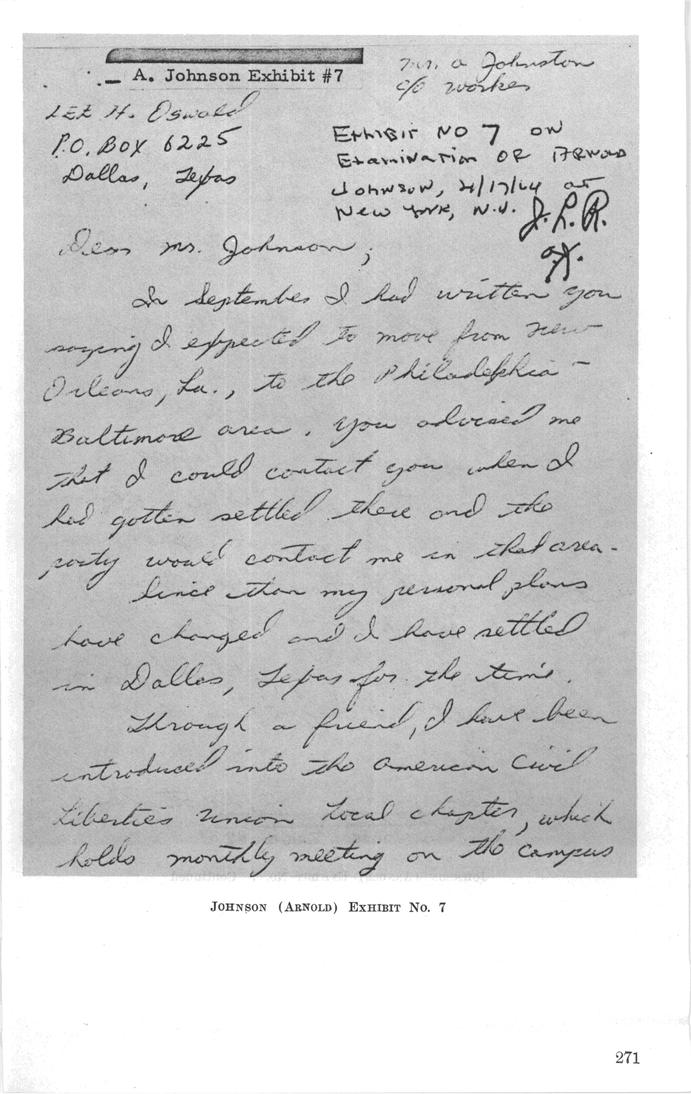 A. Johnson Exhibit #7
Mr. A Johnston
c/o worker
LEE H. Oswald
P.O. BOX 6225
Dallas, Texas
EXHIBIT NO 7 ON
EXAMINATION OF ARNOLD
JOHNSON, 4/17/64 at
NEW YORK, N.Y. J.L.R.
a.J.
Dear Mr. Johnson;
In September I had written you
saying I expected to move from New
Orleans, La., to the Philadelphia-
Baltimore area. You advised me
that I could contact you when I
had gotten settled there and the
party would contact me in that area.
Since than my personal plans
have changed and I have settled
in Dallas, Texas for the time.
Through a friend, I have been
introduced into the American Civil
Liberties Union local chapter, which
holds monthly meeting on the campus
JOHNSON (ARNOLD) EXHIBIT No. 7
271